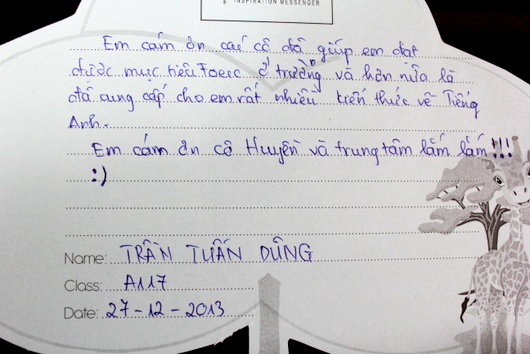 INSPIRATION MESSENGER
Em cảm ơn các cô đã giúp em đạt
được mục tiêu Toeic ở trường và hơn nữa là
đã cung cấp cho em rất nhiều kiến thức về Tiếng
Anh.
Em cảm ơn cô Huyền và trung tâm lắm lắm!!!
:)
Name: TRẦN TUẤN DŨNG
Class: A117
Date: 27-12-2013